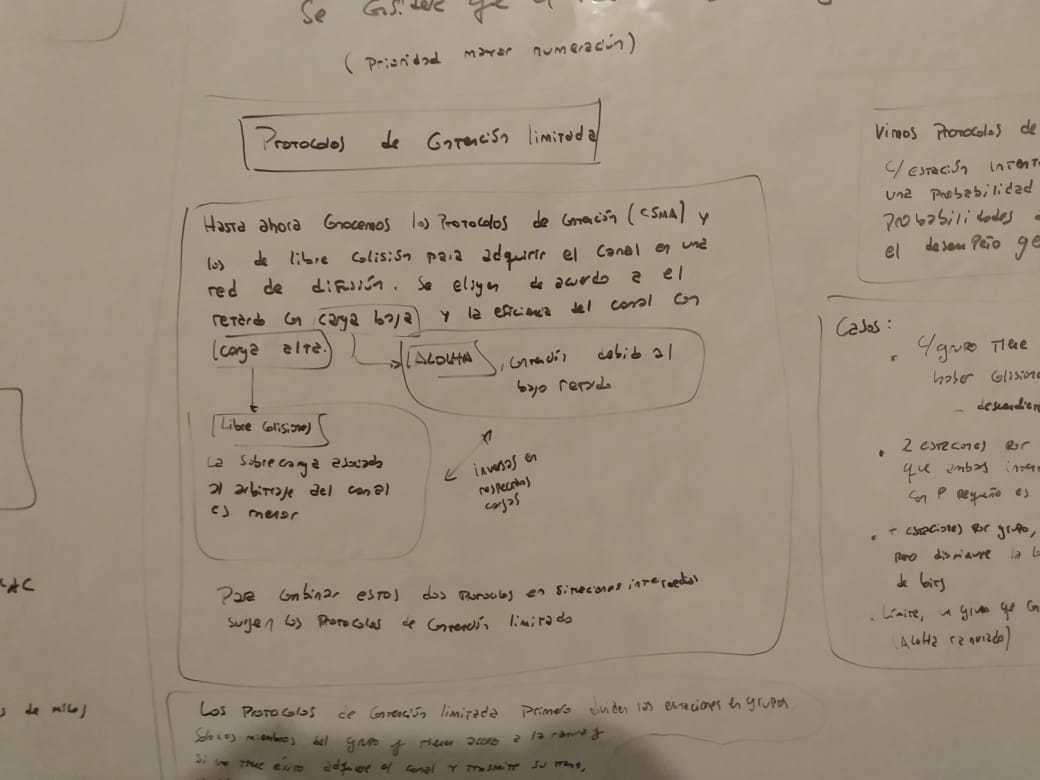 Se considere que el
(Prioridad mayor numeración)
Protocolos de Contención limitada
Hasta ahora conocemos los Protocolos de contención (CSMA) y
los de libre colisión para adquirir el canal en una
red de difusión. Se eligen de acuerdo a el
retardo con carga baja y la eficiencia del canal con
carga alta.
ALOHA, contención debido al
bajo retardo
Libre colisiones
La sobrecarga asociada
al arbitraje del canal
es menor
inversas en
respectivas
cargas
Para combinar estos dos Protocolos en situaciones intermedias
surgen los Protocolos de Contención limitada
Los Protocolos de Contención limitada Primero dividen las estaciones en grupos.
Solo los miembros del grupo j tienen acceso a la ranura j
Si uno tiene éxito adquiere el canal y transmite su trama,
Vimos Protocolos de
c/ estación
una Probabilidad
Probabilidades
el desempeño
Casos:
• c/ grupo Tiene
haber colisiones
2 estaciones por
que ambas
con P pequeño es
• + estaciones por grupo,
pero disminuye la
de bits
. Límite, un grupo que
(Aloha ranurado)
de